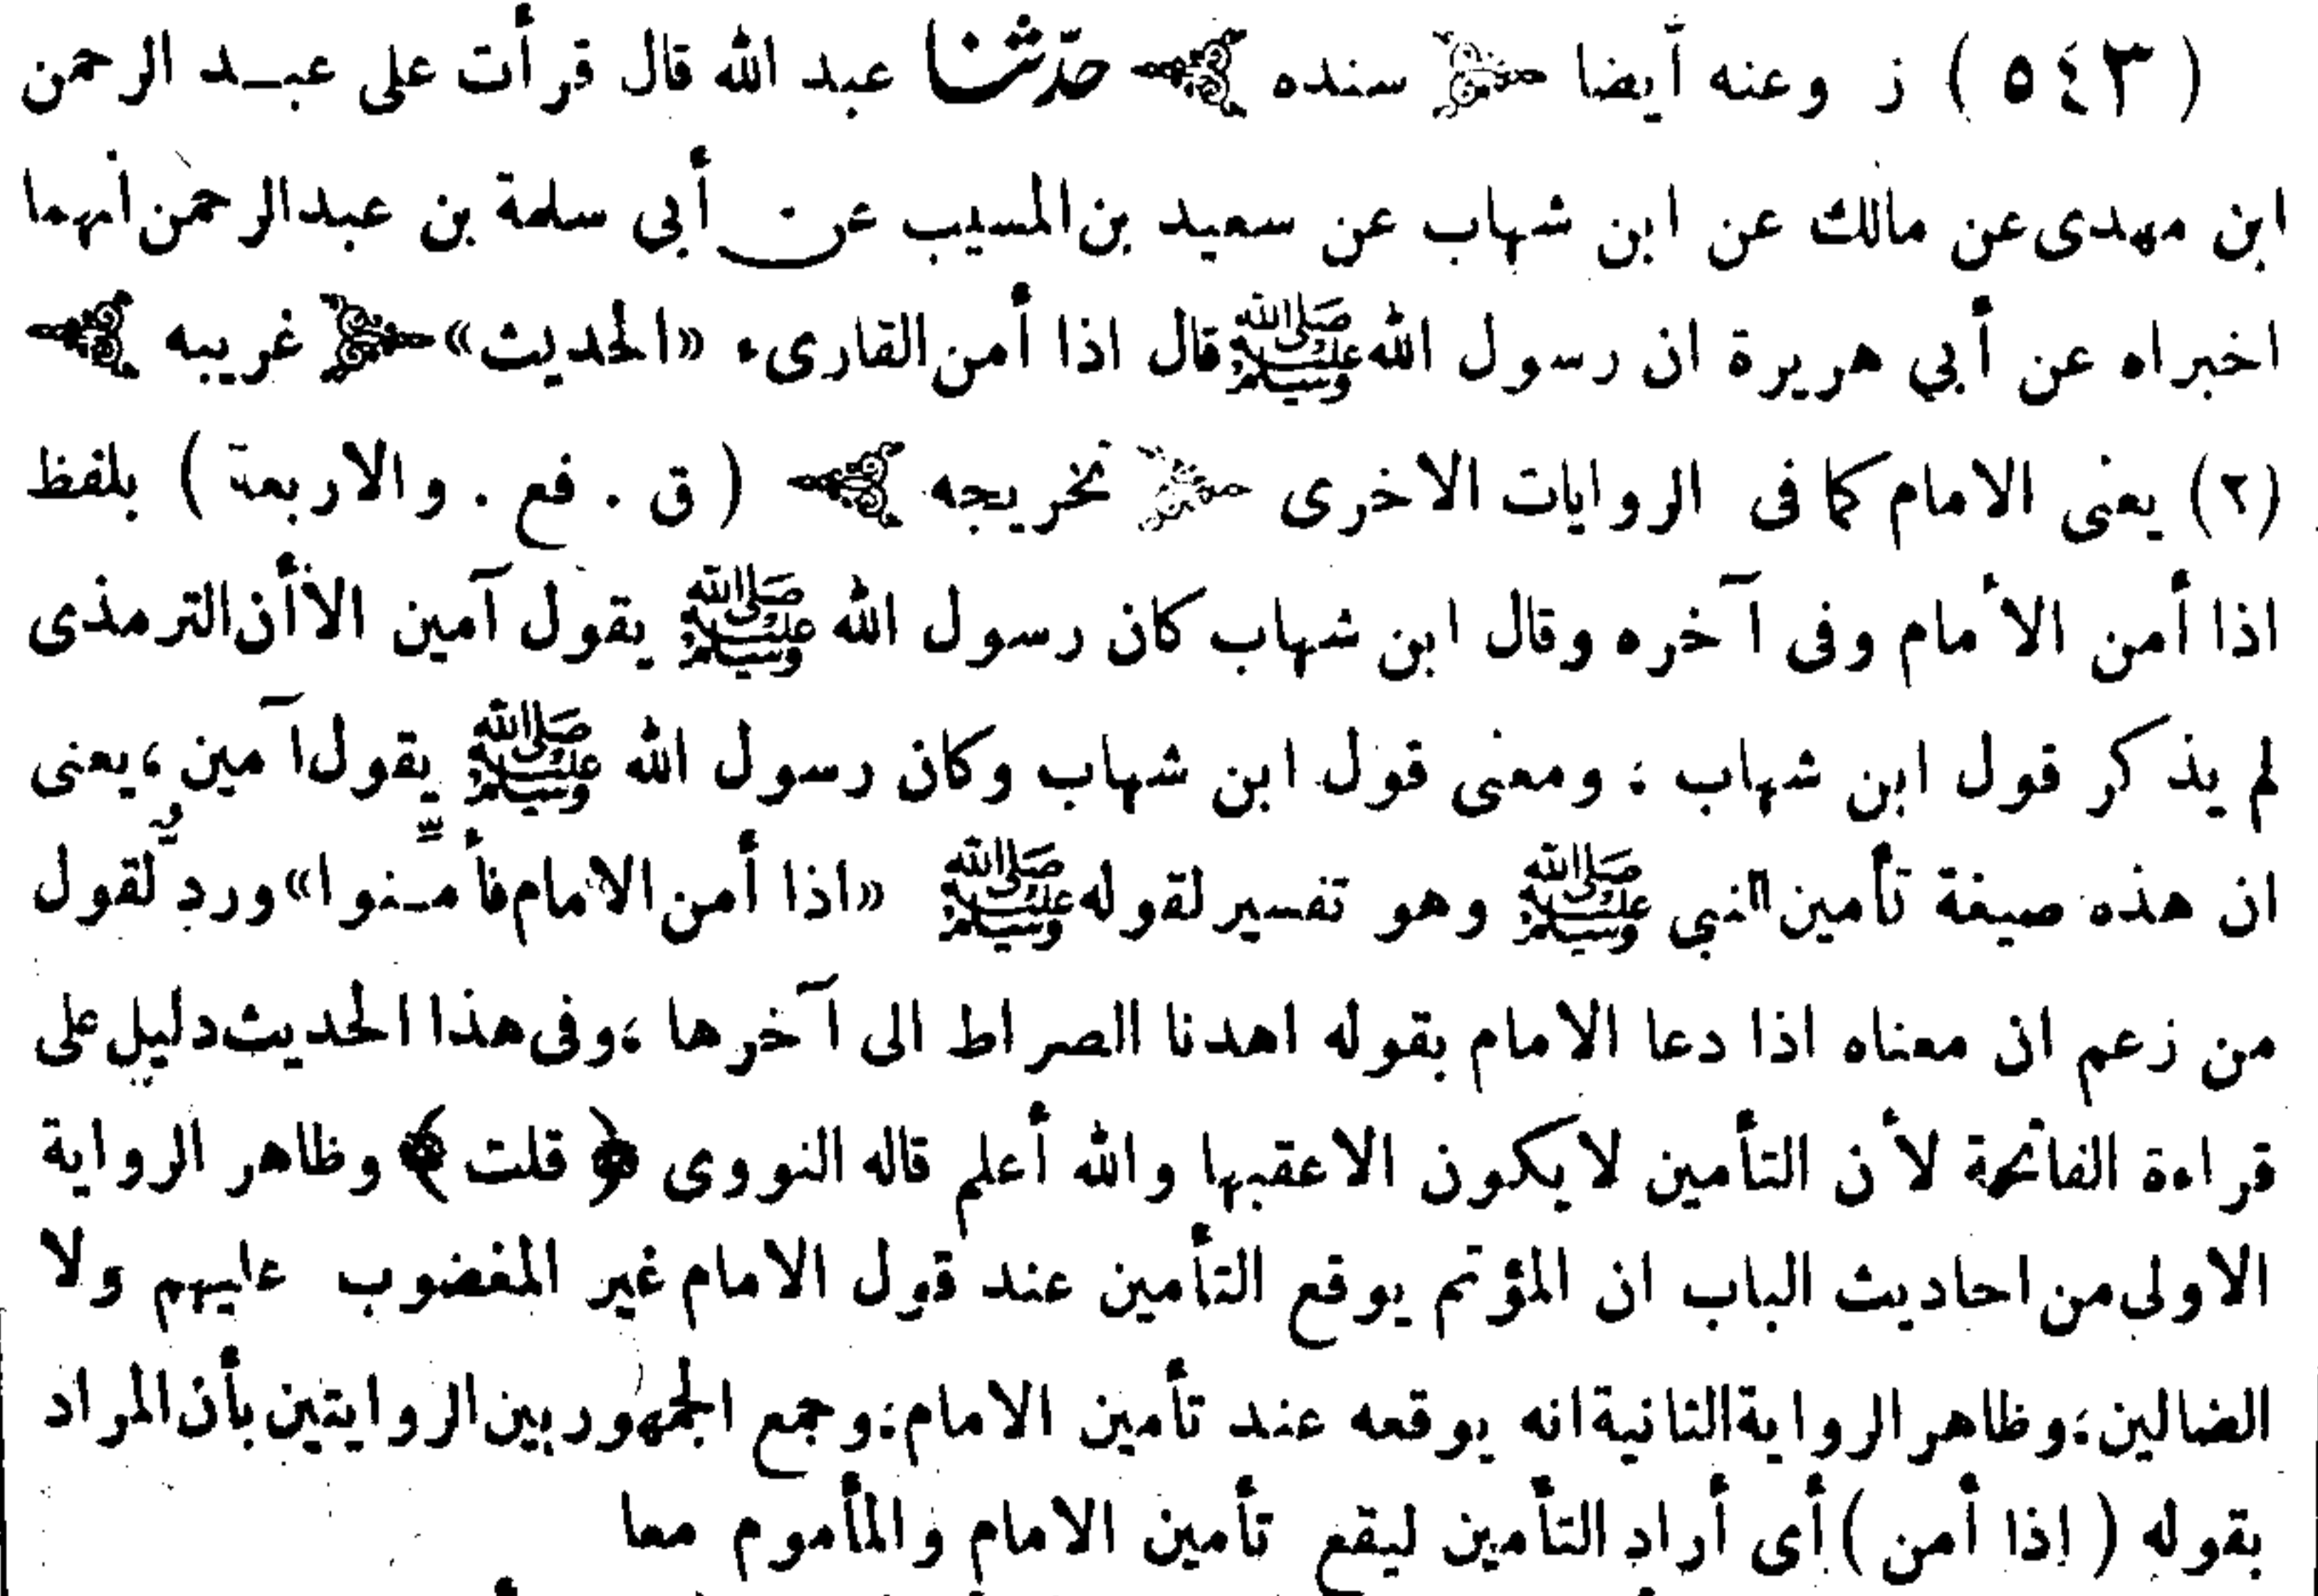 (٥٤٣) ز وعنه أيضا ﴿ سنده ﴾ حدّثنا عبد الله قال قرأت على عبـد الرحمن
ابن مهدى عن مالك عن ابن شهاب عن سعيد بن المسيب عن أبي سلمة بن عبد الرحمن أنهما
اخبراه عن أبي هريرة ان رسول الله ﷺ قال اذا أمن القارىء «الحديث» ﴿ غريبه ﴾
(٢) يعنى الامام كما فى الروايات الاخرى ﴿ تخريجه ﴾ (ق . فع . والاربعة) بلفظ
اذا أمن الأمام وفى آخره وقال ابن شهاب كان رسول الله ﷺ يقول آمين الا أن الترمذى
لم يذكر قول ابن شهاب ؛ ومعنى قول ابن شهاب وكان رسول الله ﷺ يقول آمين ، يعنى
ان هذه صيغة تأمين النبي ﷺ وهو تفسير لقوله ﷺ «اذا أمن الامام فأمـنوا» وردٌّ لقول
من زعم ان معناه اذا دعا الامام بقوله اهدنا الصراط الى آخرها ، وفى هذا الحديث دليل على
قراءة الفاتحة لأن التأمين لا يكون الا عقبها والله أعلم قاله النووى ﴿ قلت ﴾ وظاهر الرواية
الاولى من احاديث الباب ان المؤتم يوقع التأمين عند قول الامام غير المغضوب عليهم ولا
الضالين ؛ وظاهر الرواية الثانية انه يوقعه عند تأمين الامام ؛ وجمع الجمهور بين الروايتين بأن المراد
بقوله (إذا أمن) أى أراد التأمين ليقع تأمين الامام والمأموم معا